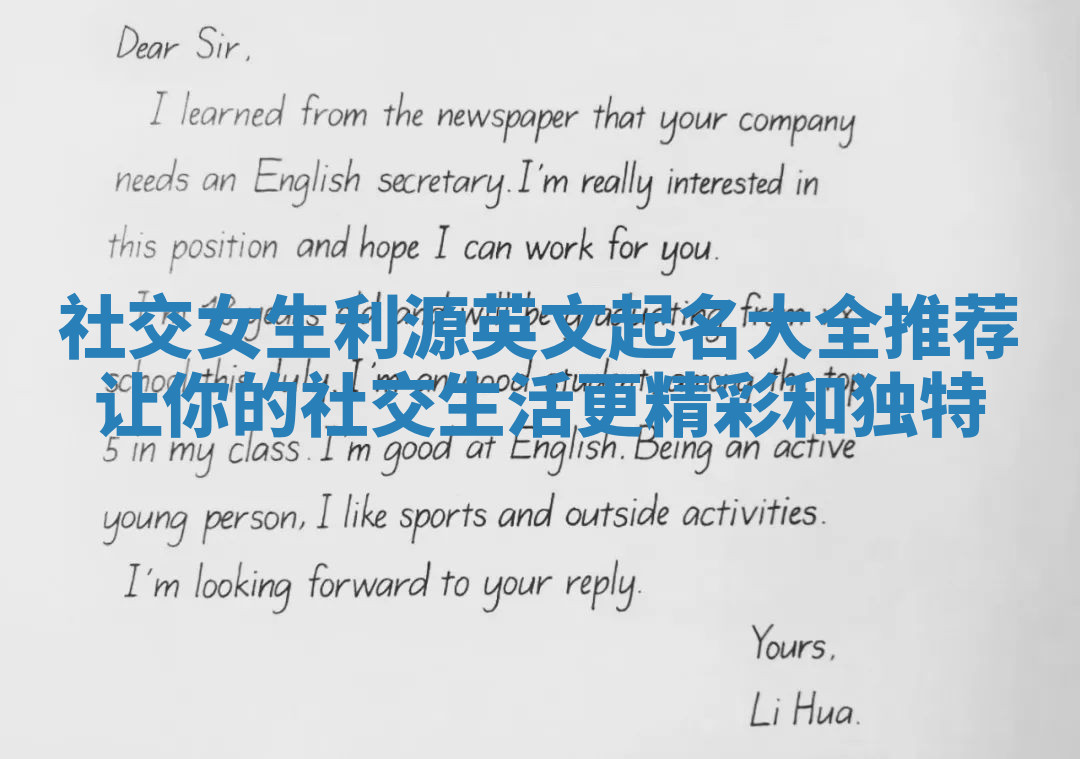 Dear Sir,
I learned from the newspaper that your company
needs an English secretary. I'm really interested in
this position and hope I can work for you.
I'm 18 years old and will be graduating from xx
社交女生利源英文起名大全推荐
school this July. I'm an good student, among the top
让你的社交生活更精彩和独特
5 in my class. I'm good at English. Being an active
young person, I like sports and outside activities.
I'm looking forward to your reply.
Yours,
Li Hua.